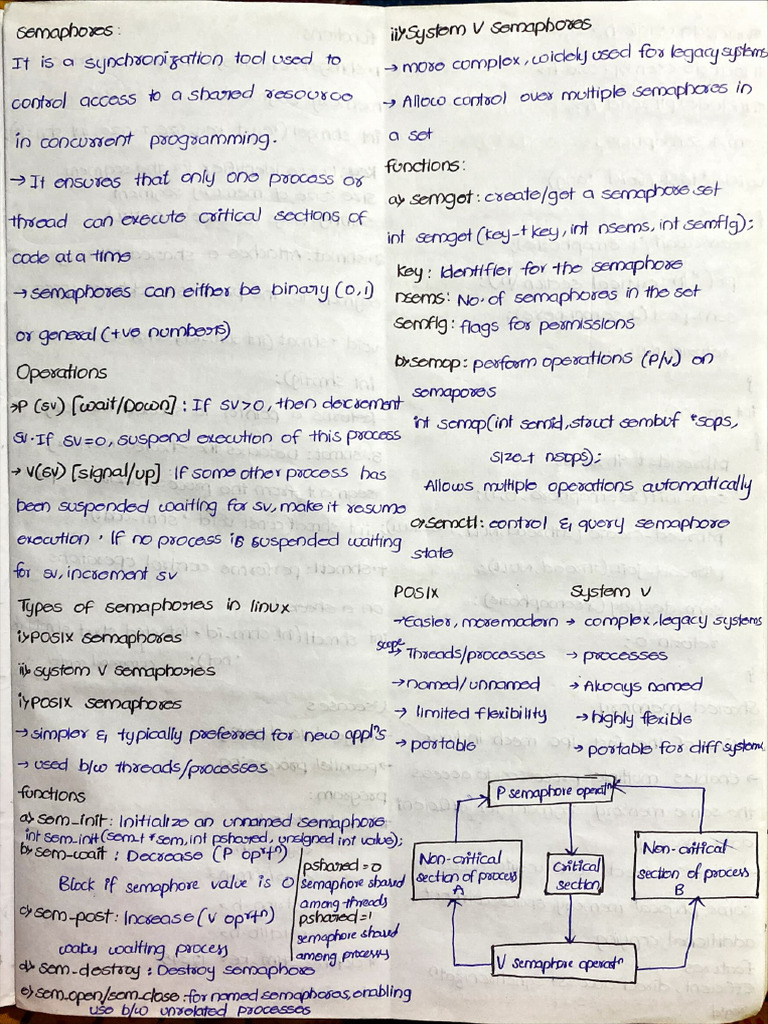 semaphores:
It is a synchronization tool used to
control access to a shared resource
in concurrent programming.
→ It ensures that only one process or
thread can execute critical sections of
code at a time
→ semaphores can either be binary (0,1)
or general (+ve numbers)
Operations
→ P (sv) [wait/Down] : If sv>0, then decrement
sv. If sv=0, suspend execution of this process
→ V(sv) [signal/up] : If some other process has
been suspended waiting for sv, make it resume
execution. If no process is suspended waiting
for sv, increment sv
Types of semaphores in linux
i) POSIX semaphores
ii) system V semaphores
i) POSIX semaphores
→ simpler & typically preferred for new appl's
→ used b/w threads/processes
functions
a) sem_init: Initialize an unnamed semaphore
int sem_init(sem_t *sem, int pshared, unsigned int value);
b) sem-wait : Decrease (P oprtn)
Block if semaphore value is 0
c) sem-post: Increase (V oprtn)
wakes waiting process
pshared = 0
semaphore shared
among threads
pshared=1
semaphore shared
among processes
d) sem-destroy : Destroy semaphore
e) sem_open/sem_close :for named semaphores, enabling
use b/w unrelated processes
ii) System V Semaphores
→ more complex, widely used for legacy systems
→ Allow control over multiple semaphores in
a set
functions:
a) semget : create/get a semaphore set
int semget (key-t key, int nsems, int semflg);
key : Identifier for the semaphore
nsems: No. of semaphores in the set
semflg: flags for permissions
b) semop: perform operations (P/V) on
semapores
int semop(int semid, struct sembuf *sops,
size_t nsops);
Allows multiple operations automatically
c) semctl: control & query semaphore
state
POSIX System V
→ Easier, more modern → complex, legacy systems
scope → Threads/processes → processes
→ named/unnamed → Always named
→ limited flexibility → highly flexible
→ portable → portable for diff systems
P semaphore operatn
Non-critical
section of process
A
Critical
section
Non-critical
section of process
B
V semaphore operatn